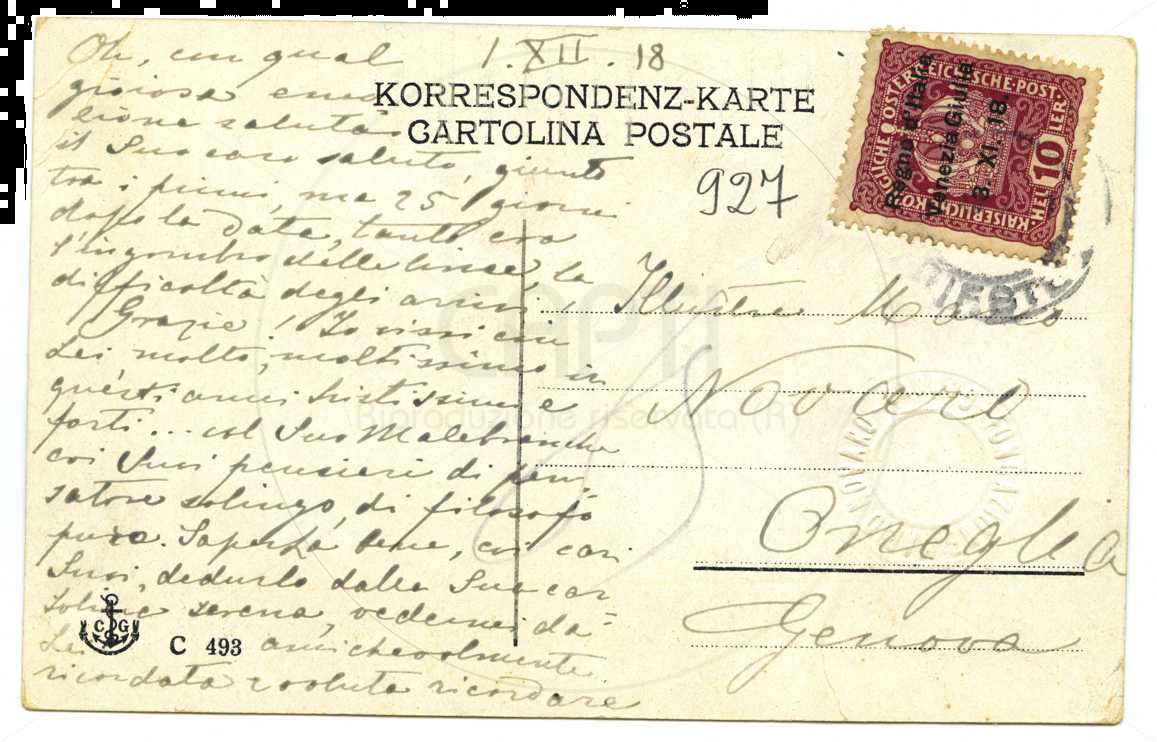 1. XII. 18
KORRESPONDENZ-KARTE
CARTOLINA POSTALE
927
KAISERLICHE KÖNIGLICHE ÖSTERREICHISCHE POST.
HELLER 10
Regno d'Italia
Venezia Giulia
3. XI. 18
Oh, con qual
gioiosa emo
zione saluta
il Suo caro saluto, giunto
tra i primi, ma 25 giorni
dopo la data, tanto era
l'ingombro delle linee, la
difficoltà degli arrivi!
Grazie! Io vissi con
Lei molto, moltissimo in
questi anni tristissimi e
forti... col Suo Malebranche
coi Suoi pensieri di pen
satore solingo, di filosofo
puro. Saperla bene, coi cari
Suoi, dedurlo dalla Sua car
tolina serena, vedermi da
Lei amichevolmente
ricordata e voluta ricordare
Illustre Mario
Novaro
Oneglia
Genova
C G
C 493
CAPTI
Riproduzione riservata (R)
NOVARO